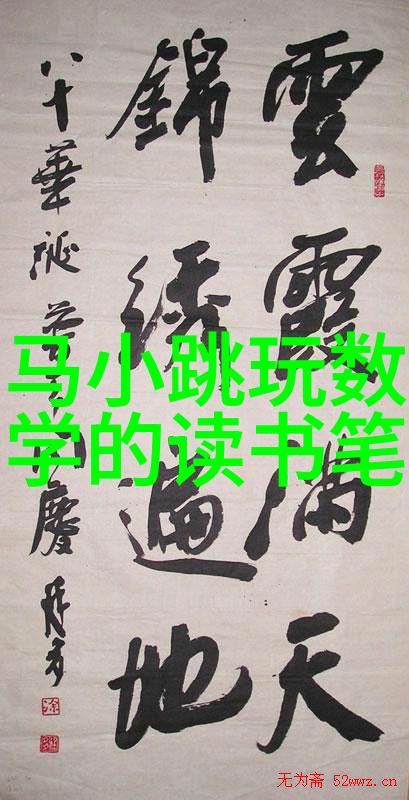 雲霞滿天
錦繡遍地
八十華誕
馬小跳玩数
学的读书笔
无为斋 52wwz.cn